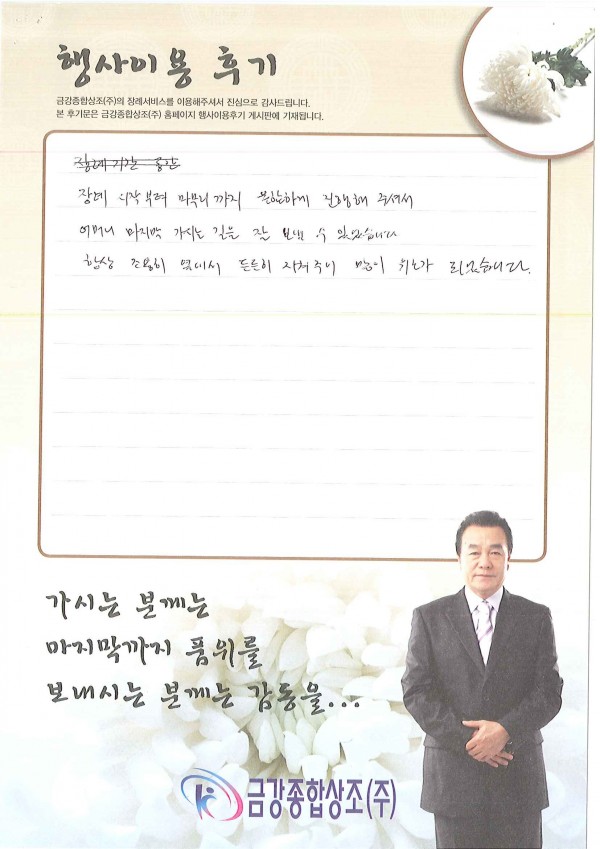 행사이용 후기
금강종합상조(주)의 장례서비스를 이용해주셔서 진심으로 감사드립니다.
본 후기문은 금강종합상조(주) 홈페이지 행사이용후기 게시판에 기재됩니다.
장례기간 동안
장례 시작부터 마무리까지 원활하게 진행해 주셔서
어머니 마지막 가시는 길을 잘 보낼 수 있었습니다
항상 조용히 옆에서 든든히 지켜주어 많이 위로가 되었습니다.
가시는 분께는
마지막까지 품위를
보내시는 분께는 감동을...
금강종합상조(주)